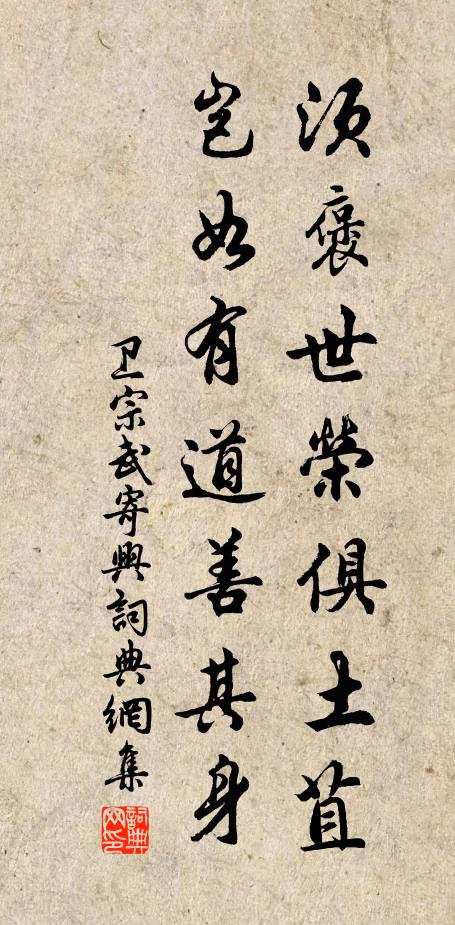 須褒世榮俱土苴
豈如有道善其身
卫宗武寄興詞典網集
詞典網印